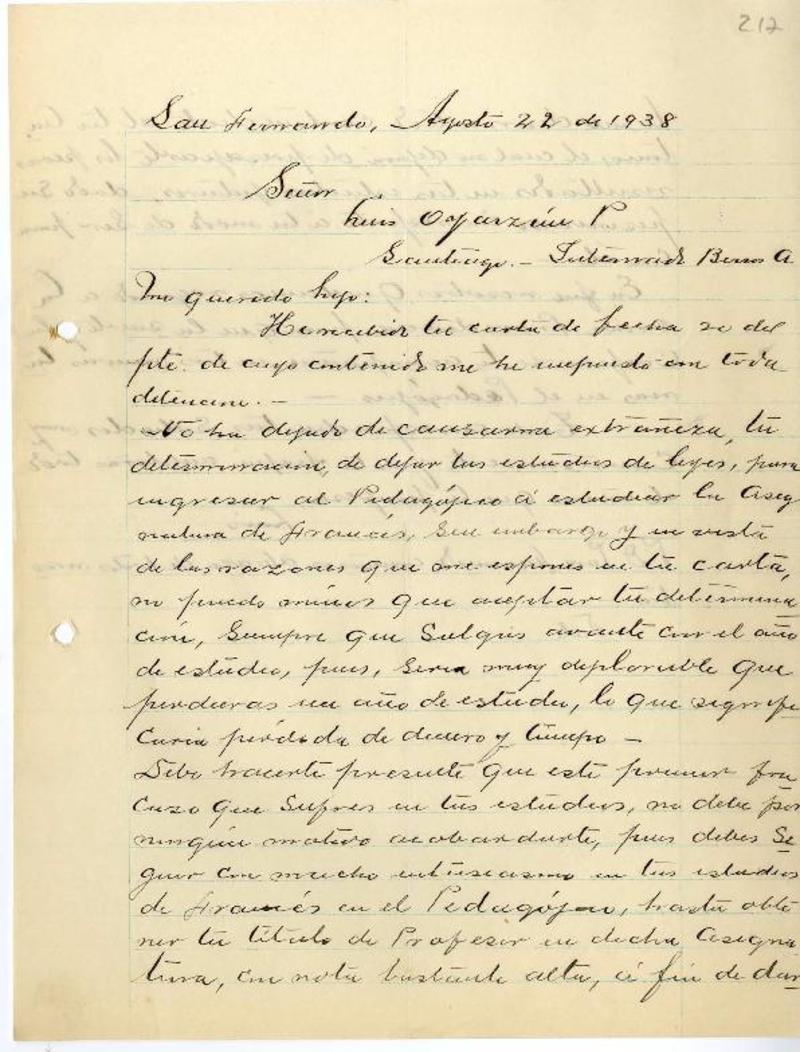 217
San Fernando, Agosto 22 de 1938
Señor
Luis Oyarzún P
Santiago. - Internado Barros A
Mi querido hijo:
He recibido tu carta de fecha 20 del
pte. de cuyo contenido me he impuesto con toda
detencion. -
No ha dejado de causarme extrañeza, tu
determinacion, de dejar tus estudios de leyes, para
ingresar al Pedagójico á estudiar la Asig
natura de Francés, sin embargo y en vista
de las razones que me espones en tu carta,
no puedo ménos que aceptar tu determina
ción, siempre que salgas avante con el año
de estudio, pues, seria muy deplorable que
perdieras un año de estudio, lo que signifi
caria pérdida de dinero y tiempo -
Debo hacerte presente que este primer fra
cazo que sufres en tus estudios, no debe por
ningún motivo acobardarte, pues debes se
guir con mucho entusiasmo en tus estudios
de Francés en el Pedagójico, hasta obte
ner tu título de Profesor en dicha Asigna
tura, con nota bastante alta, á fin de dar